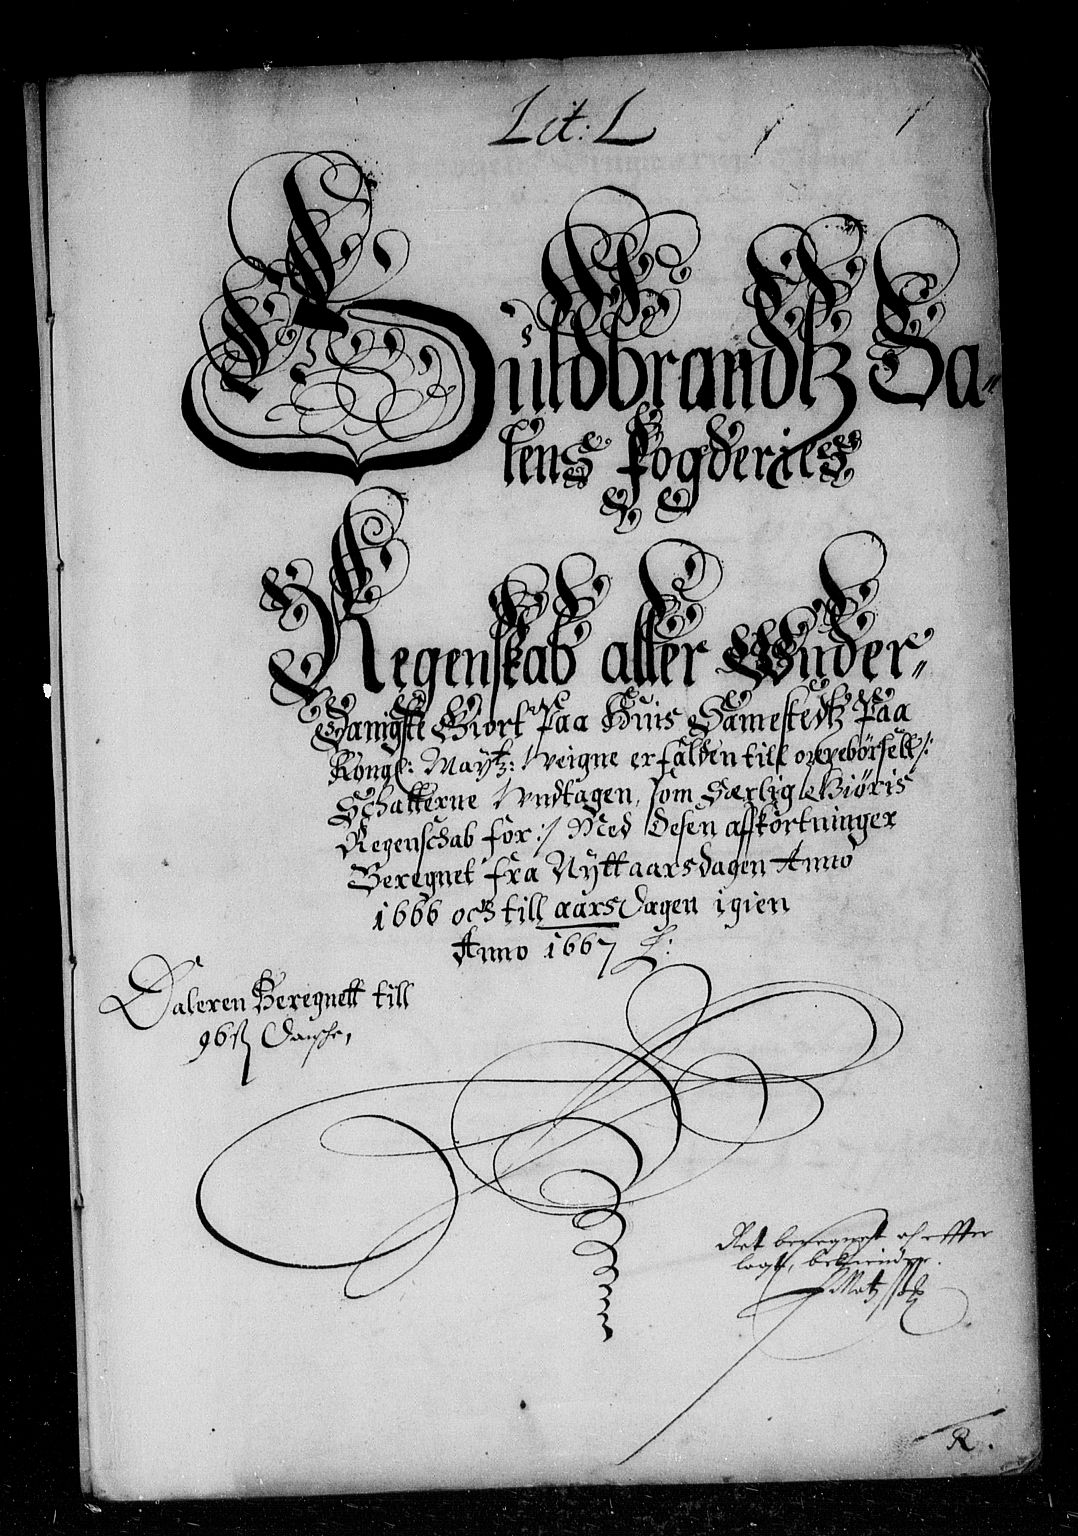 Lit: L
Guldbrandtz Da-
lens Fogderies
Regenskab aller Under-
Danigste Giort Paa Huis Hamestedtz Paa
Kongl: Maytz: Weigne erfalden till oppebörsell /:
Schatterne Undtagen, som Særlig Giöris
Regenschab for :/ Med desen affkortninger
Beregnet fra Nytt aarsdagen Anno
1666 och till aarsdagen igien
Anno 1667
Daleren Beregnett till
96 ß Dansche,
Ret beregnet och effter
lagt, bekiender.
R.